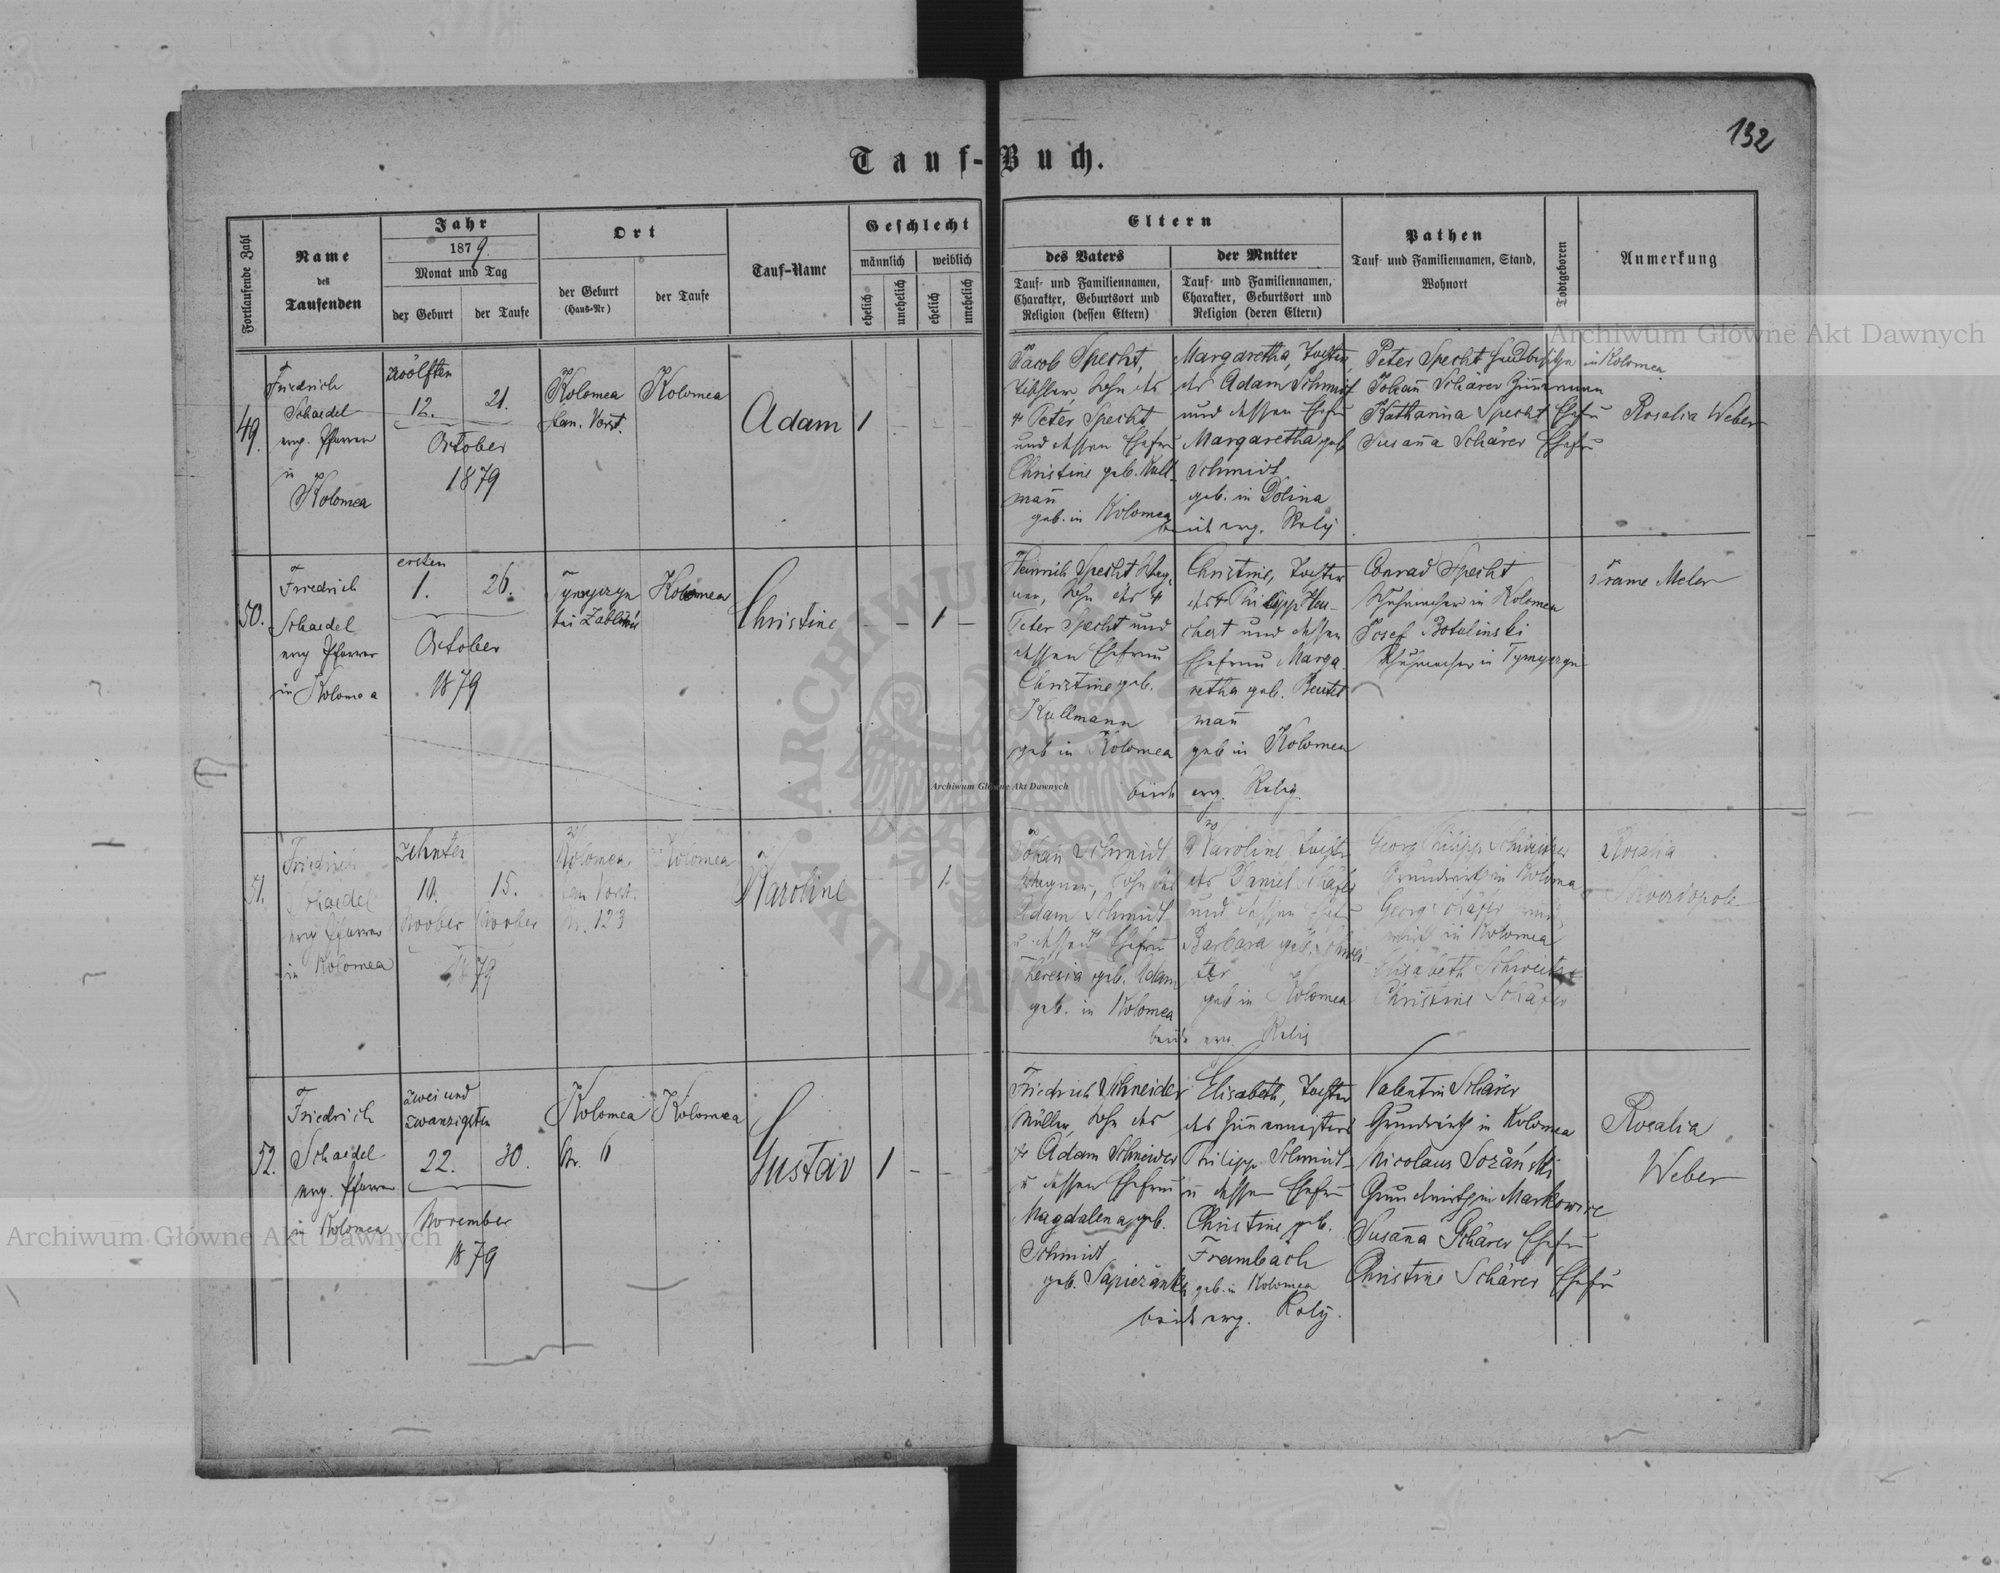 132
Tauf-Buch.
Fortlaufende Zahl
Name
des
Taufenden
Jahr
1879
Monat und Tag
der Geburt
der Taufe
Ort
der Geburt
(Haus-Nr)
der Taufe
Tauf-Name
Geschlecht
männlich
weiblich
ehelich
unehelich
ehelich
unehelich
Eltern
des Vaters
Tauf- und Familiennamen,
Charakter, Geburtsort und
Religion (dessen Eltern)
der Mutter
Tauf- und Familiennamen,
Charakter, Geburtsort und
Religion (deren Eltern)
Pathen
Tauf- und Familiennamen, Stand,
Wohnort
Todtgeboren
Anmerkung
49.
Friedrich
Schaedel
evg. Pfarrer
in
Kolomea
zwölften
12.
21.
October
1879
Kolomea
Vorst.
Kolomea
Adam
1
Jacob Specht,
Tischler, Sohn des
† Peter Specht
und dessen Ehefrau
Christine geb. Kull-
mañ
geb. in Kolomea
Margaretha, Tochter
des Adam Schmidt
und dessen Ehefr
Margaretha geb
Schmidt
geb. in Dolina
beide evg. Relig
Peter Specht in Kolomea
Johañ Schärer Zim̃ermann
Katharina Specht Ehefr
Susaña Schärer Ehefr
Rosalia Weber
50.
Friedrich
Schaedel
evg Pfarrer
in Kolomea
ersten
1.
26.
October
1879
bei
Kolomea
Christine
1
Heinrich Specht Wag-
ner, Sohn des †
Peter Specht und
dessen Ehefrau
Christine geb.
Kullmann
geb in Kolomea
Christine, Tochter
des † Philipp Heu-
chert und dessen
Ehefrau Marga-
retha geb.
mañ
geb in Kolomea
beide evg. Relig
Conrad Specht
Schuhmacher in Kolomea
Josef
Schuhmacher in
51.
Friedrich
Schaedel
evg Pfarrer
in Kolomea
zehnter
10.
15.
Novber
Novber
1879
Kolomea
Vorst.
Nr. 123
Kolomea
Karoline
1
Johañ Schmidt
Wagner, Sohn des
Adam Schmidt
u dessen Ehefrau
Theresia geb. Adam
geb. in Kolomea
Karoline Tochter
des Daniel Schäfer
und dessen Ehefr
Barbara geb.
geb in Kolomea
beide evg. Relig
Georg Philipp Schweitzer
Grundwirth in Kolomea
Georg Schäfer
in Kolomea
Elisabeth Schweitzer
Christine Schäfer
Rosalia
52.
Friedrich
Schaedel
evg. Pfarrer
in Kolomea
zwei und
zwanzigsten
22.
30.
November
1879
Kolomea
Nr. 6
Kolomea
Gustav
1
Friedrich Schneider
Müller, Sohn des
† Adam Schneider
u dessen Ehefrau
Magdalena geb.
Schmidt
geb.
Elisabeth, Tochter
des Zim̃ermeisters
Philipp Schmidt
u dessen Ehefr
Christine geb.
Frambach
geb. in Kolomea
beide evg. Relig.
Valentin Schärer
Grundwirth in Kolomea
Nicolaus Sozański
Grundwirth in
Susaña Schärer Ehefr
Christine Schärer Ehefr
Rosalia
Weber
Archiwum Główne Akt Dawnych
Archiwum Główne Akt Dawnych
Archiwum Główne Akt Dawnych